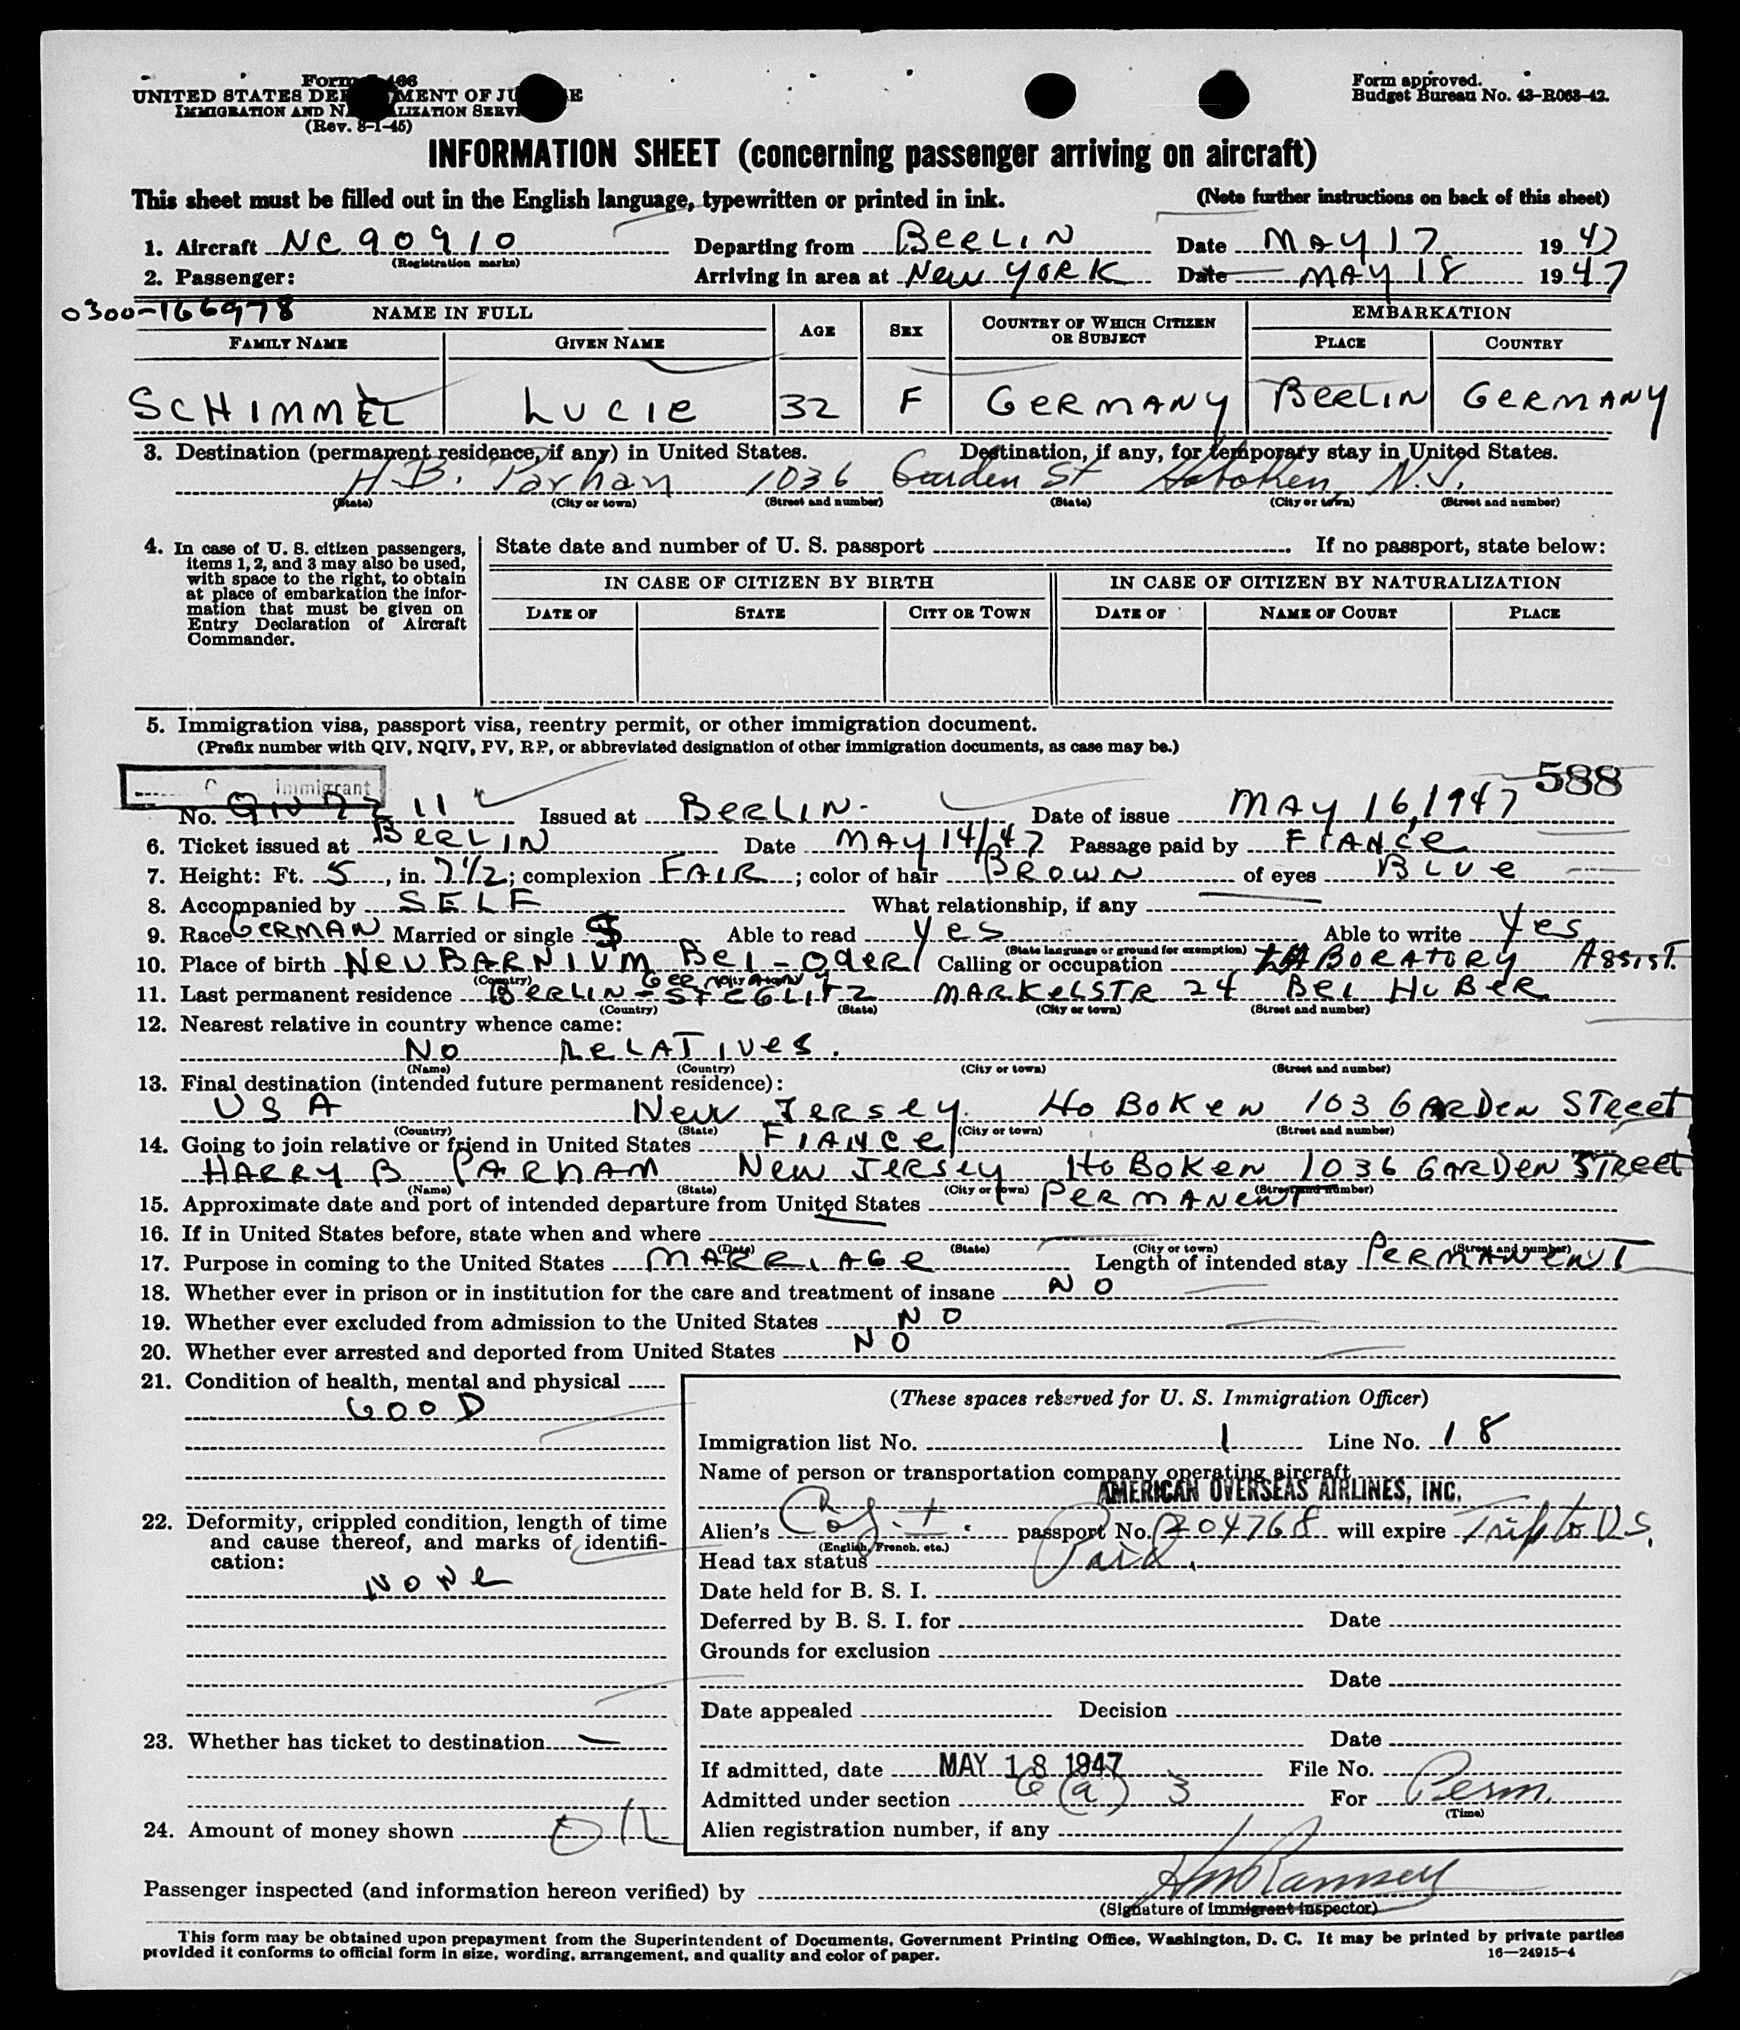 Form 466
UNITED STATES DEPARTMENT OF JUSTICE
IMMIGRATION AND NATURALIZATION SERVICE
(Rev. 8-1-45)
Form approved.
Budget Bureau No. 43-R063-42.
INFORMATION SHEET (concerning passenger arriving on aircraft)
This sheet must be filled out in the English language, typewritten or printed in ink. (Note further instructions on back of this sheet)
1. Aircraft NC 90910 Departing from BERLIN Date MAY 17 1947
(Registration marks)
2. Passenger: Arriving in area at NEW YORK Date MAY 18 1947
0300-166978
NAME IN FULL AGE SEX COUNTRY OF WHICH CITIZEN OR SUBJECT EMBARKATION
FAMILY NAME GIVEN NAME PLACE COUNTRY
SCHIMMEL LUCIE 32 F GERMANY BERLIN GERMANY
3. Destination (permanent residence, if any) in United States. Destination, if any, for temporary stay in United States.
H.B. Parhan 1036 Garden St Hoboken, N.J.
(State) (City or town) (Street and number) (State) (City or town) (Street and number)
4. In case of U. S. citizen passengers, items 1, 2, and 3 may also be used, with space to the right, to obtain at place of embarkation the information that must be given on Entry Declaration of Aircraft Commander.
State date and number of U. S. passport If no passport, state below:
IN CASE OF CITIZEN BY BIRTH IN CASE OF CITIZEN BY NATURALIZATION
DATE OF STATE CITY OR TOWN DATE OF NAME OF COURT PLACE
5. Immigration visa, passport visa, reentry permit, or other immigration document.
(Prefix number with QIV, NQIV, PV, RP, or abbreviated designation of other immigration documents, as case may be.)
immigrant
588
No. QIV 72 11 Issued at BERLIN Date of issue MAY 16, 1947
6. Ticket issued at BERLIN Date MAY 14/47 Passage paid by FIANCE
7. Height: Ft. 5, in. 7 1/2; complexion FAIR; color of hair BROWN of eyes BLUE
8. Accompanied by SELF What relationship, if any
9. Race GERMAN Married or single S Able to read Yes Able to write Yes
(State language or ground for exemption)
10. Place of birth NEUBARNIUM BEI-ODER GERMANY Calling or occupation LABORATORY ASSIST.
(Country) (City or town)
11. Last permanent residence BERLIN-STEGLITZ MARKELSTR 24 BEI HUBER
(Country) (State) (City or town) (Street and number)
12. Nearest relative in country whence came:
NO RELATIVES.
(Name) (Country) (City or town) (Street and number)
13. Final destination (intended future permanent residence):
USA NEW JERSEY HOBOKEN 103 GARDEN STREET
(Country) (State) (City or town) (Street and number)
14. Going to join relative or friend in United States FIANCE
HARRY B PARHAM NEW JERSEY HOBOKEN 1036 GARDEN STREET
(Name) (State) (City or town) (Street and number)
15. Approximate date and port of intended departure from United States PERMANENT
16. If in United States before, state when and where
(Date) (State) (City or town) (Street and number)
17. Purpose in coming to the United States MARRIAGE Length of intended stay PERMANENT
18. Whether ever in prison or in institution for the care and treatment of insane NO
19. Whether ever excluded from admission to the United States NO
20. Whether ever arrested and deported from United States NO
21. Condition of health, mental and physical
GOOD
22. Deformity, crippled condition, length of time and cause thereof, and marks of identification:
NONE
23. Whether has ticket to destination
24. Amount of money shown
(These spaces reserved for U. S. Immigration Officer)
Immigration list No. 1 Line No. 18
Name of person or transportation company operating aircraft
AMERICAN OVERSEAS AIRLINES, INC.
Alien's passport No. 204768 will expire Trip to U.S.
(English, French, etc.)
Head tax status Paid.
Date held for B. S. I.
Deferred by B. S. I. for Date
Grounds for exclusion
Date
Date appealed Decision
Date
If admitted, date MAY 18 1947 File No.
Admitted under section 6 (a) 3 For Perm.
(Time)
Alien registration number, if any
Passenger inspected (and information hereon verified) by HM Ramsey
(Signature of immigrant inspector)
This form may be obtained upon prepayment from the Superintendent of Documents, Government Printing Office, Washington, D. C. It may be printed by private parties
provided it conforms to official form in size, wording, arrangement, and quality and color of paper. 16—24915-4